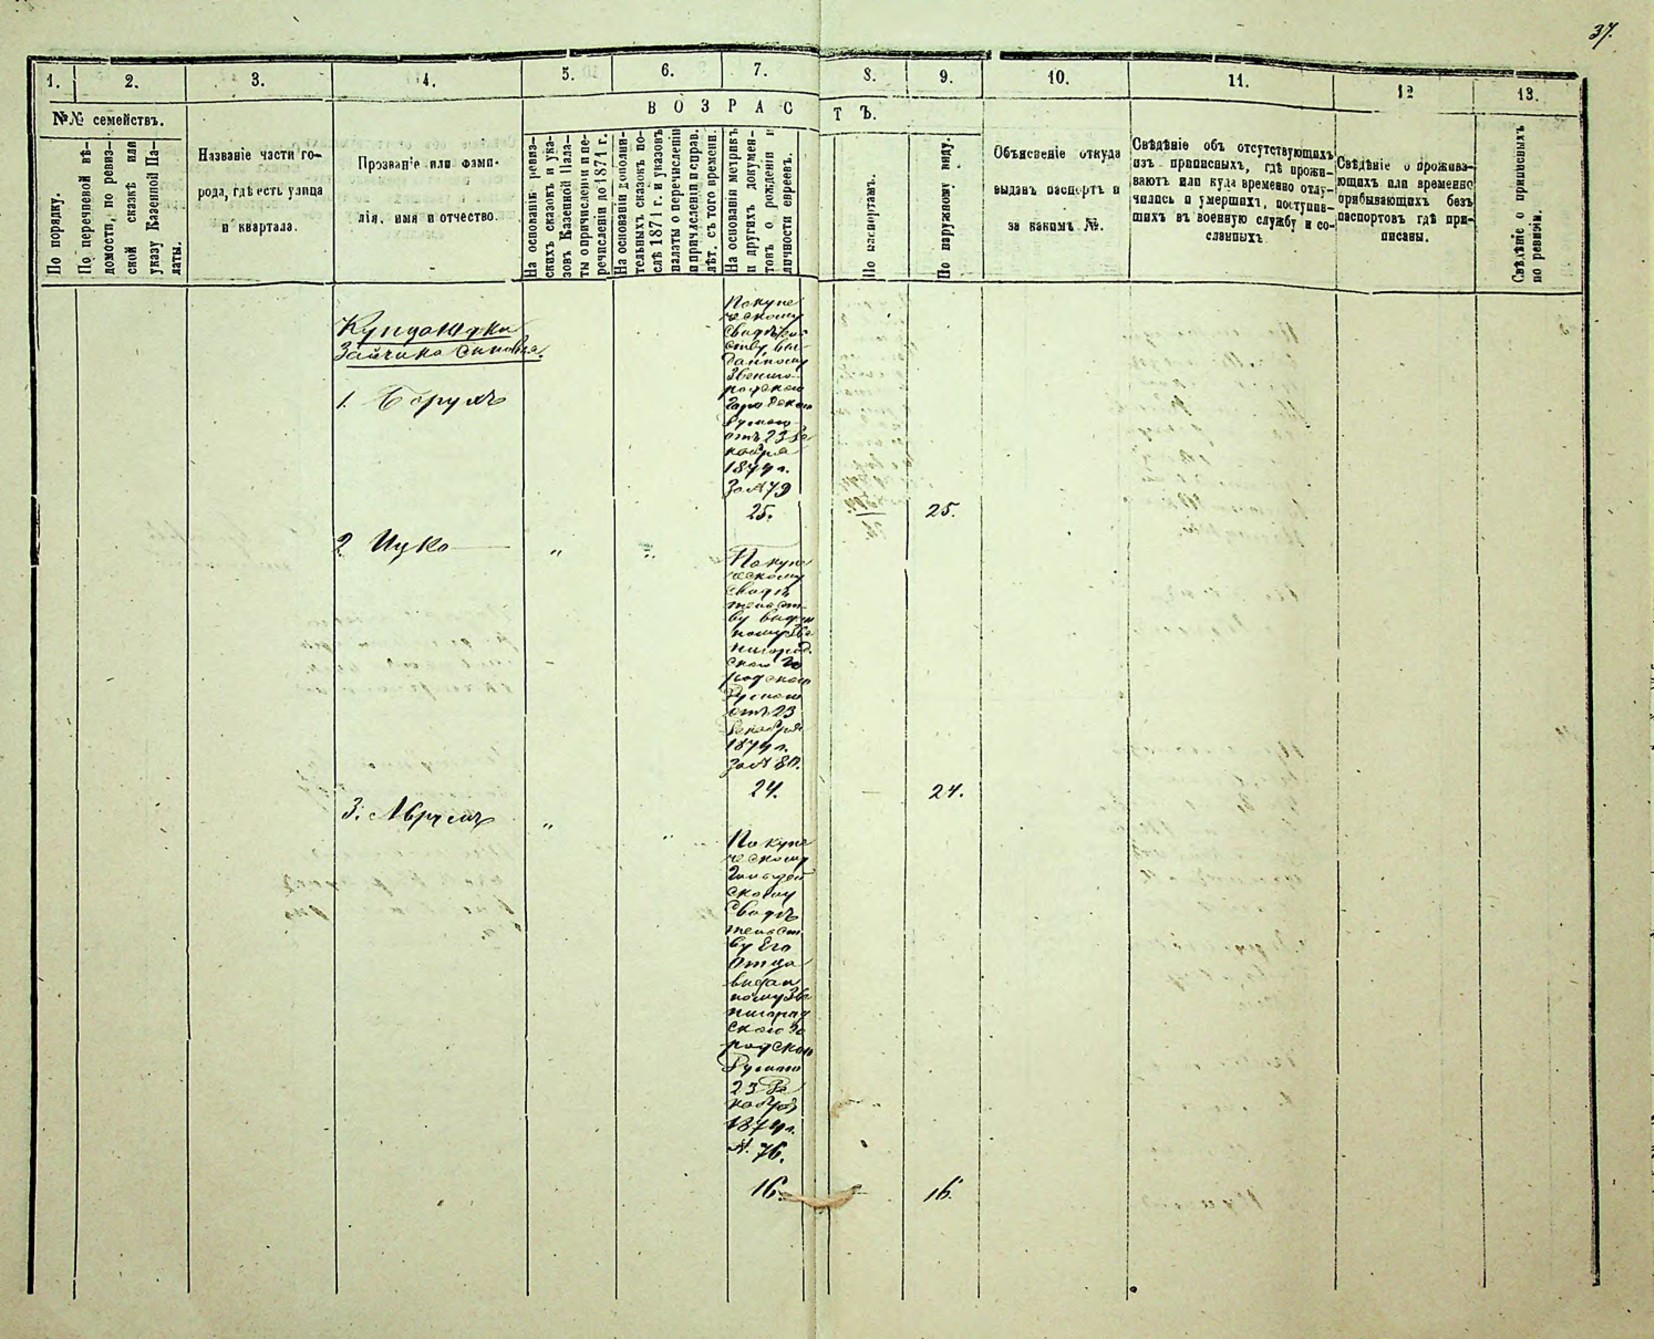 37.
1. 2. 3. 4. 5. 6. 7. 8. 9. 10. 11. 12 13.
№№ семействъ.
В О З Р А С Т Ъ.
По порядку.
По перечневой вѣ-
домости, по ревиз-
ской сказкѣ или
указу Казенной Па-
латы.
Названіе части го-
рода, гдѣ есть улица
и квартала.
Прозваніе или фами-
лія, имя и отчество.
На основаніи ревиз-
скихъ сказокъ и ука-
зовъ Казенной Пала-
ты о причисленіи и пе-
речисленіи до 1871 г.
На основаніи дополни-
тельныхъ сказокъ по-
слѣ 1871 г. и указовъ
палаты о перечисленіи
и причисленіи и справ.
лѣт. съ того времени.
На основаніи метрикъ
и другихъ докумен-
товъ о рожденіи и
личности евреевъ.
По паспортамъ.
По наружному виду.
Объясненіе откуда
выданъ паспортъ и
за какимъ №.
Свѣдѣніе объ отсутствующихъ
изъ приписныхъ, гдѣ прожи-
ваютъ или куда временно отлу-
чились и умершихъ, поступив-
шихъ въ военную службу и со-
сланныхъ
Свѣдѣніе о прожива-
ющихъ или временно
прибывающихъ безъ
паспортовъ гдѣ при-
писаны.
Свѣдѣніе о приписныхъ
по ревизіи.
Зайчика сыновья.
1. Борухъ
По купе
ческому
Свидѣтель
ству вы-
данному
Звениго-
родскою
Городскою
Думою
отъ 23 Де
кабря
1874 г.
За № 79
25. 25.
2 Ицко „ „
По купе
ческому
Свидѣ
тельст
ву выдан
ному Зве
нигород
скою Го
родскою
Думою
отъ 23
Декабря
1874 г.
За № 80.
24. 24.
3. Аврумъ „ „
По купе
ческому
Гильдей
скому
Свидѣ
тельст
ву Его
Отца
выдан
ному Зве
нигород
скою Го
родскою
Думою
23 Де
кабря
1874 г.
№ 76.
16. 16.